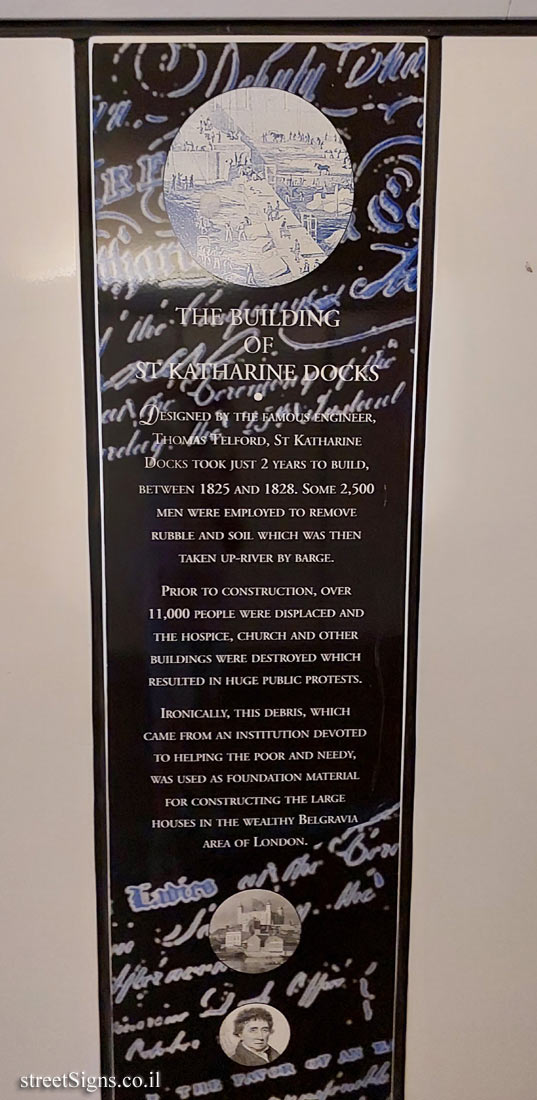 Deputy
THE BUILDING
OF
ST KATHARINE DOCKS
DESIGNED BY THE FAMOUS ENGINEER,
THOMAS TELFORD, ST KATHARINE
DOCKS TOOK JUST 2 YEARS TO BUILD,
BETWEEN 1825 AND 1828. SOME 2,500
MEN WERE EMPLOYED TO REMOVE
RUBBLE AND SOIL WHICH WAS THEN
TAKEN UP-RIVER BY BARGE.
PRIOR TO CONSTRUCTION, OVER
11,000 PEOPLE WERE DISPLACED AND
THE HOSPICE, CHURCH AND OTHER
BUILDINGS WERE DESTROYED WHICH
RESULTED IN HUGE PUBLIC PROTESTS.
IRONICALLY, THIS DEBRIS, WHICH
CAME FROM AN INSTITUTION DEVOTED
TO HELPING THE POOR AND NEEDY,
WAS USED AS FOUNDATION MATERIAL
FOR CONSTRUCTING THE LARGE
HOUSES IN THE WEALTHY BELGRAVIA
AREA OF LONDON.
Ladies at the
the
THE FAVOR OF AN
streetSigns.co.il